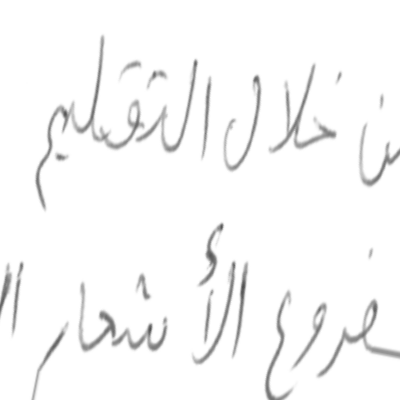 من خلال التقليم
لفروع الأشجار ال